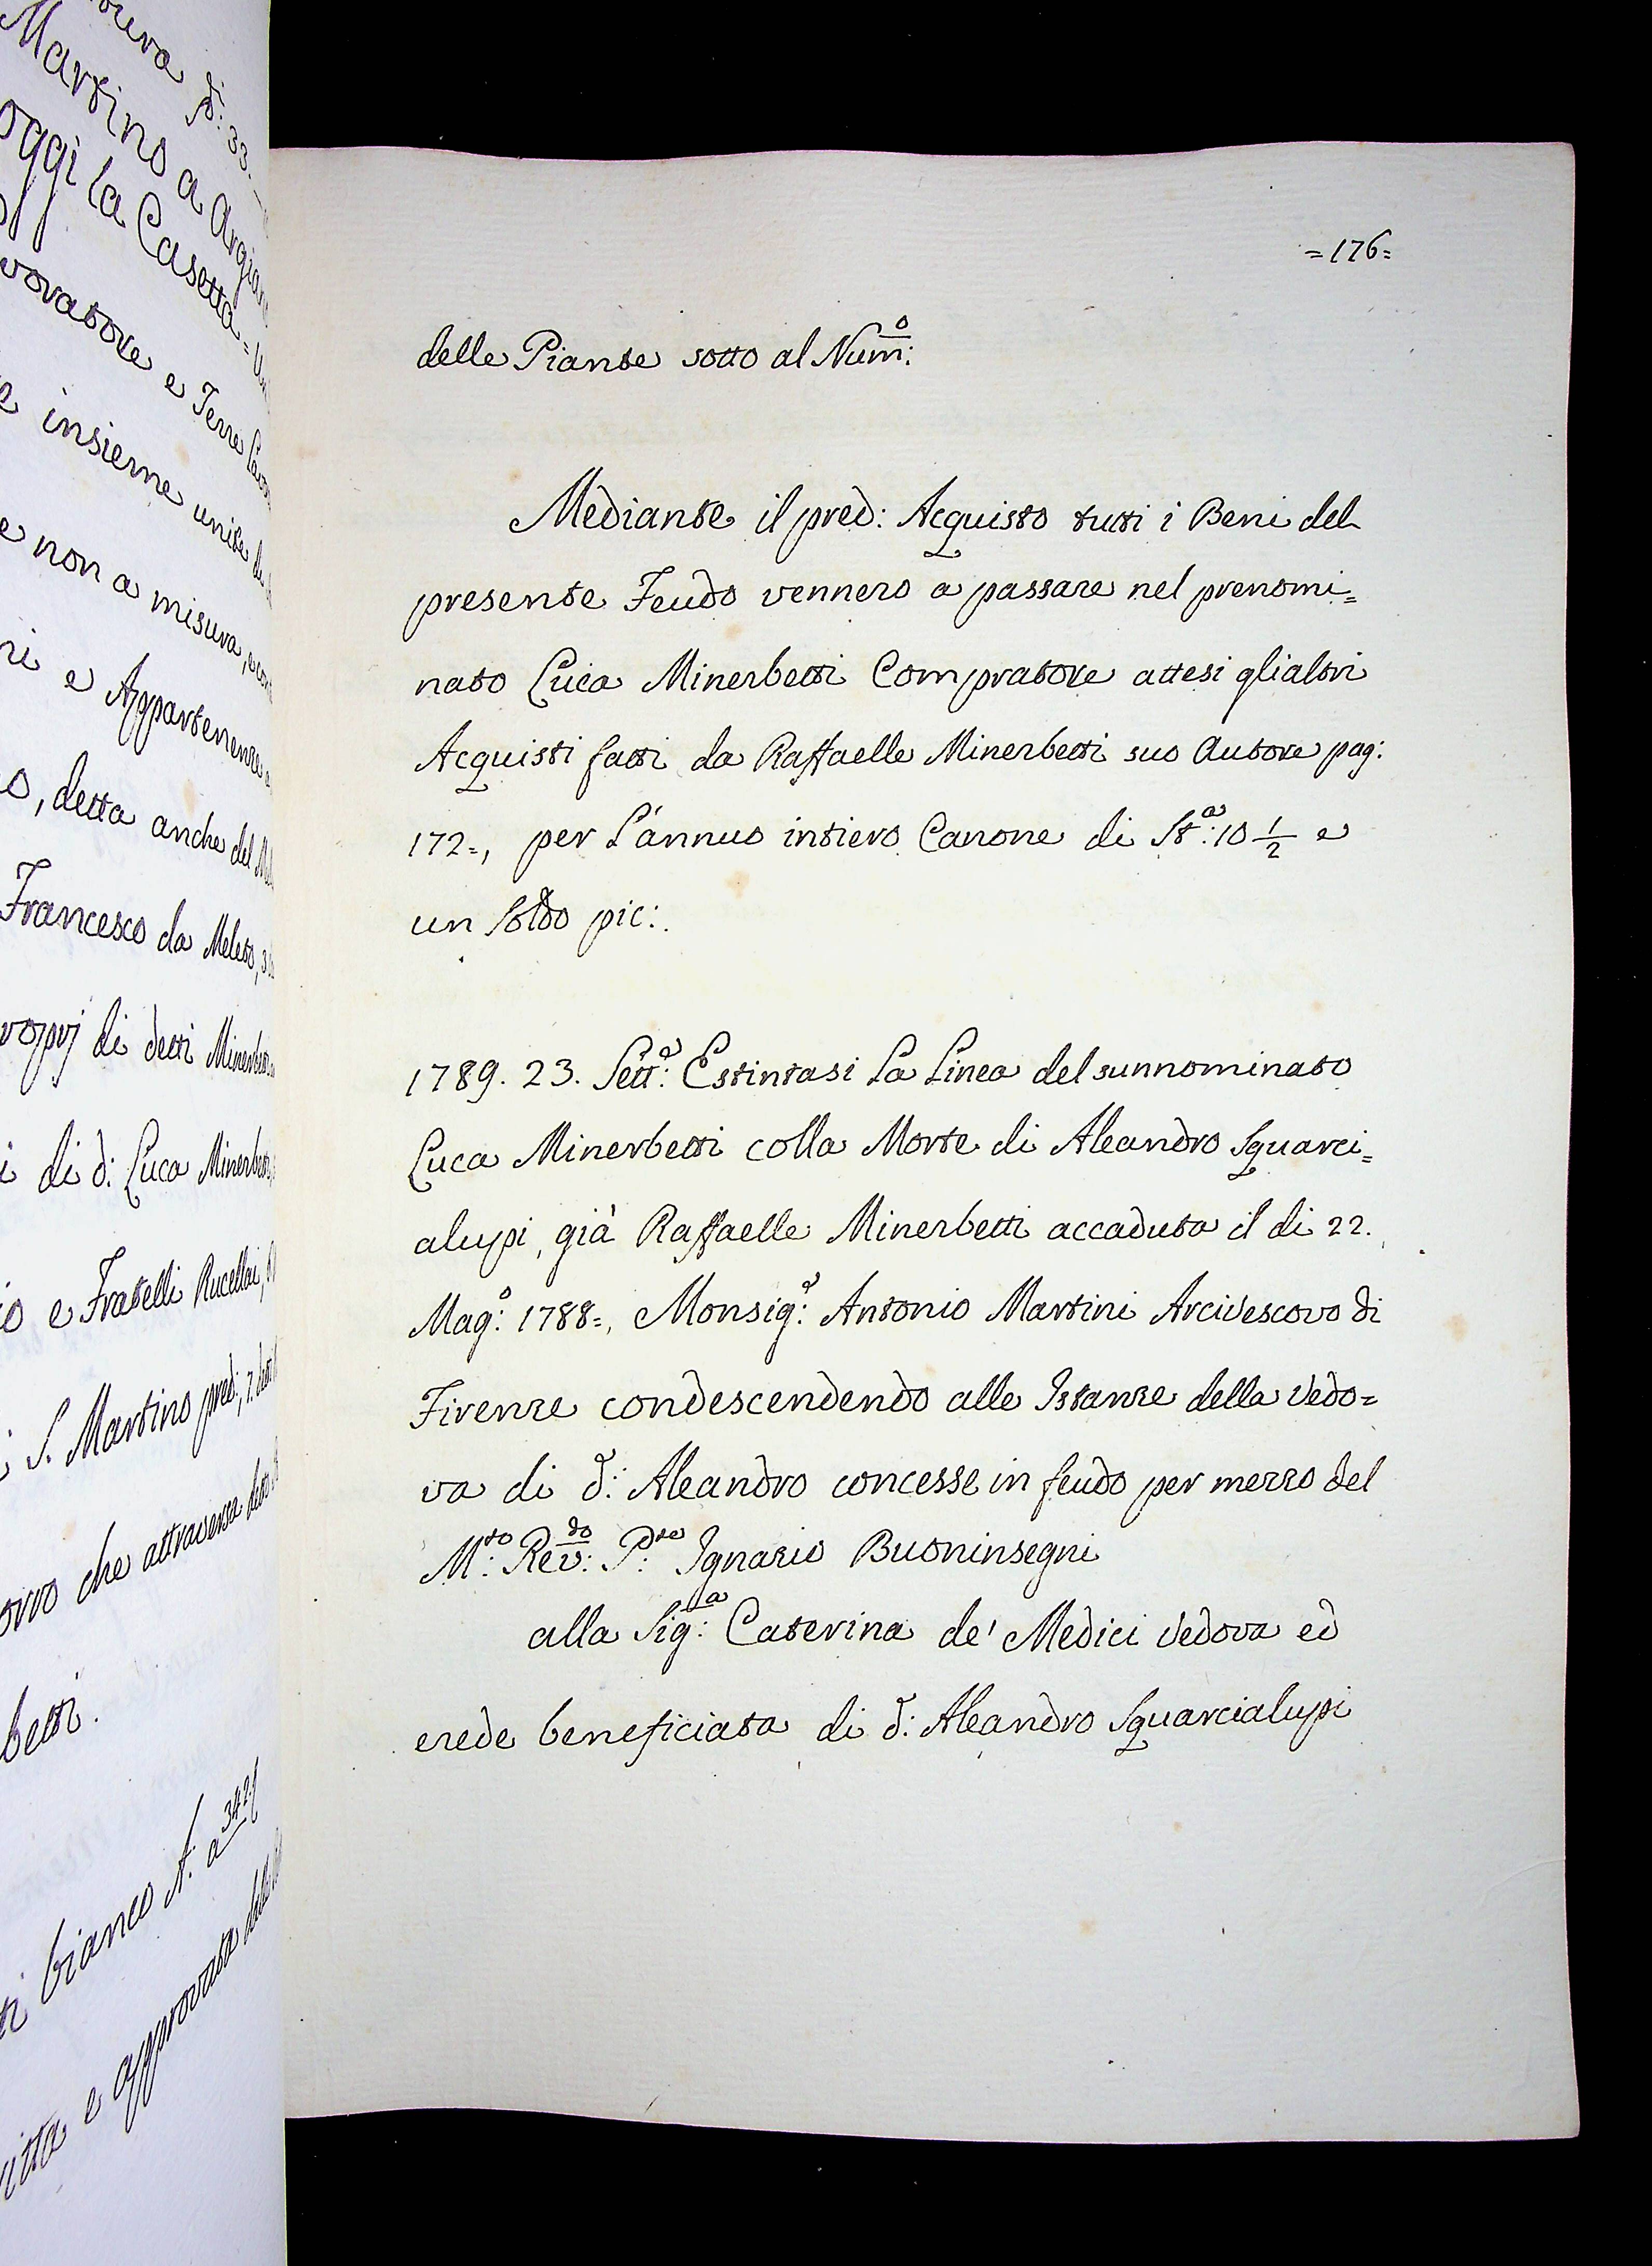 =176=
delle Piante sotto al Num:o
Mediante il pred: Acquisto tutti i Beni del
presente Feudo vennero a passare nel prenomi=
nato Luca Minerbetti Compratore attesi glialtri
Acquisti fatti da Raffaelle Minerbetti suo Autore pag:
172=, per l'annuo intiero Canone di St:a 10 1/2 e
un Soldo pic:.
1789. 23. Sett:e Estintasi la Linea del sunnominato
Luca Minerbetti colla Morte di Aleandro Squarci=
alupi, già Raffaelle Minerbetti accaduta il di 22.
Mag:o 1788=, Monsig:e Antonio Martini Arcivescovo di
Firenze condescendendo alle Istanze della Vedo=
va di d:o Aleandro concesse in feudo per mezzo del
M:to Rev:do P:te Ignazio Buoninsegni
alla Sig:ra Caterina de' Medici Vedova ed
erede beneficiata di d: Aleandro Squarcialupi
Martino a
oggi la Casetta=
e Terre
insieme unite
e non a misura,
e Appartenenze
o, detta anche del
Francesco da Meleto,
di detti
di d: Luca
e Fratelli Rucellai,
S. Martino pred:,
che attraversa
betti.
bianco
e approvata